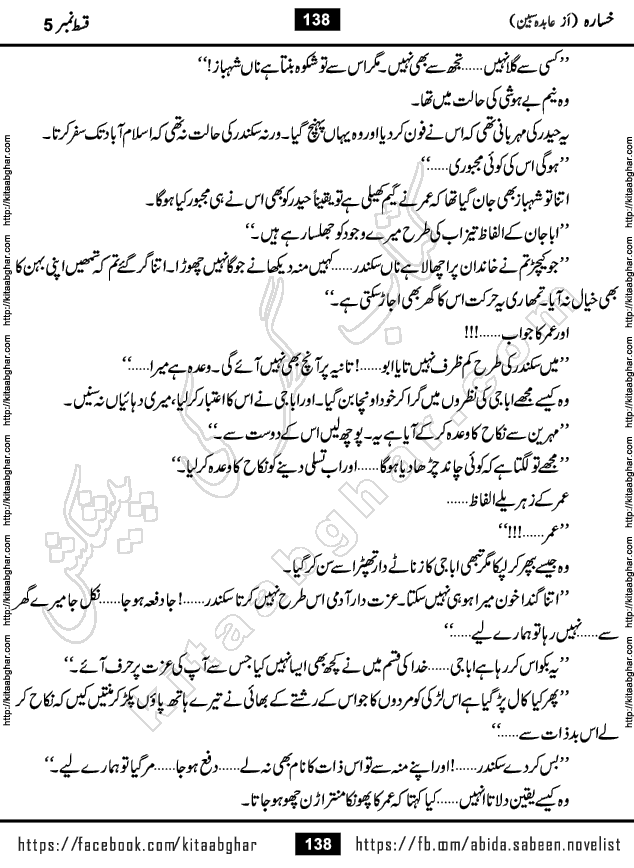 خسارہ (از عابدہ سبین) 138 قسط نمبر 5
’’کسی سے گلا نہیں......تجھ سے بھی نہیں۔ مگر اس سے تو شکوہ بنتا ہے ناں شہباز!‘‘
وہ نیم بے ہوشی کی حالت میں تھا۔
یہ حیدر کی مہربانی تھی کہ اس نے فون کر دیا اور وہ یہاں پہنچ گیا۔ ورنہ سکندر کی حالت نہ تھی کہ اسلام آباد تک سفر کرتا۔
’’ہو گی اس کی کوئی مجبوری......‘‘
اتنا تو شہباز بھی جان گیا تھا کہ عمر نے گیم کھیلی ہے تو یقیناً حیدر کو بھی اس نے ہی مجبور کیا ہو گا۔
’’ابا جان کے الفاظ تیزاب کی طرح میرے وجود کو جھلسا رہے ہیں۔‘‘
’’جو کیچڑ تم نے خاندان پر اچھالا ہے ناں سکندر......کہیں منہ دیکھانے جوگا نہیں چھوڑا۔ اتنا گر گئے تم کہ تمھیں اپنی بہن کا
بھی خیال نہ آیا۔ تمھاری یہ حرکت اس کا گھر بھی اجاڑ سکتی ہے۔‘‘
اور عمر کا جواب......!!!
’’میں سکندر کی طرح کم ظرف نہیں تایا ابو......! تانیہ پر آنچ بھی نہیں آئے گی۔ وعدہ ہے میرا......‘‘
وہ کیسے مجھے ابا جی کی نظروں میں گرا کر خود اونچا بن گیا۔ اور ابا جی نے اس کا اعتبار کر لیا، میری دہائیاں نہ سنیں۔
’’مہرین سے نکاح کا وعدہ کر کے آیا ہے یہ۔ پوچھ لیں اس کے دوست سے۔‘‘
’’مجھے تو لگتا ہے کہ کوئی چاند چڑھا دیا ہو گا......اور اب تسلی دینے کو نکاح کا وعدہ کر لیا۔‘‘
عمر کے زہریلے الفاظ......
’’عمر......!!!‘‘
وہ جیسے بپھر کر لپکا مگر تبھی ابا جی کا زناٹے دار تھپڑ اسے سن کر گیا۔
’’اتنا گندا خون میرا ہو ہی نہیں سکتا۔ عزت دار آدمی اس طرح نہیں کرتا سکندر......! جا دفعہ ہو جا......نکل جا میرے گھر
سے......نہیں رہا تو ہمارے لیے......‘‘
’’یہ بکواس کر رہا ہے ابا جی......خدا کی قسم میں نے کچھ بھی ایسا نہیں کیا جس سے آپ کی عزت پر حرف آئے۔‘‘
’’پھر کیا کال پڑ گیا ہے اس لڑکی کو مردوں کا جو اس کے رشتے کے بھائی نے تیرے ہاتھ پاؤں پکڑ کر منتیں کیں کہ نکاح کر
لے اس بدذات سے......‘‘
’’بس کر دے سکندر......! اور اپنے منہ سے تو اس ذات کا نام بھی نہ لے......دفع ہو جا......مر گیا تو ہمارے لیے۔‘‘
وہ کیسے یقین دلاتا انہیں......کیا کہتا کہ عمر کا پھونکا منتر اڑن چھو ہو جاتا۔
https://facebook.com/kitaabghar 138 https://fb.com/abida.sabeen.novelist
http://kitaabghar.com http://kitaabghar.com http://kitaabghar.com http://kitaabghar.com http://kitaabghar.com http://kitaabghar.com
http://kitaabghar.com http://kitaabghar.com http://kitaabghar.com http://kitaabghar.com http://kitaabghar.com http://kitaabghar.com
کتاب گھر کی پیشکش
kitaabghar.com